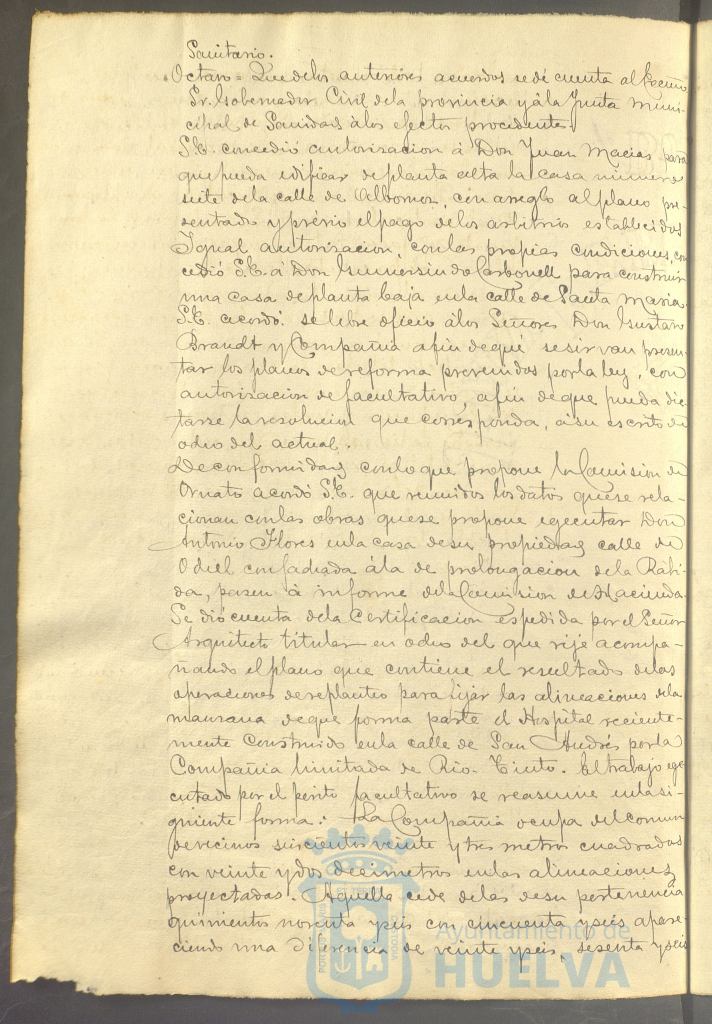 Sanitario.
Octavo = Que de los anteriores acuerdos se dé cuenta al Excmo
Sr. Gobernador Civil de la provincia y á la Junta Muni-
cipal de Sanidad á los efectos procedentes.
S.E. concedió autorizacion á Don Juan Macias para
que pueda edificar de planta alta la casa número
siete de la calle de Albornoz, con arreglo al plano pre-
sentado y prévio el pago de los arbitrios establecidos
Igual autorizacion, con las propias condiciones, con
cedió S.E. á Don Gumersindo Carbonell para construir
una casa de planta baja en la calle de Santa Maria.
S.E. acordó se libre oficio á los Señores Don Gustavo
Brandt y Compañia a fin de qué se sirvan presen-
tar los planos de reforma prevenidos por la ley, con
autorizacion de facultativo, a fin de que pueda dic-
tarse la resolucion que corresponda, á su escrito de
ocho del actual.
De conformidad con lo que propone la Comision de
Ornato acordó S.E. que reunidos los datos que se rela-
cionan con las obras que se propone egecutar Don
Antonio Flores en la casa de su propiedad calle de
Odiel con fachada á la de prolongacion de la Rabi-
da, pasen á informe de la Comision de Hacienda.
Se dió cuenta de la Certificacion espedida por el Señor
Arquitecto titular en ocho del que rije acompa-
ñando el plano que contiene el resultado de las
operaciones de replanteo para fijar las alineaciones de la
manzana de que forma parte el Hospital reciente-
mente construido en la calle de San Andrés por la
Compañia limitada de Rio-Tinto. El trabajo ege-
cutado por el perito facultativo se reasume en la si-
guiente forma: La Compañia ocupa del comun
de vecinos seiscientos veinte y tres metros cuadrados
con veinte y dos decimetros en las alineaciones
proyectadas. Aquella cede de las de su pertenencia
quinientos noventa y seis con cincuenta y seis apare-
ciendo una diferencia de veinte y seis, sesenta y seis
Ayuntamiento de
HUELVA